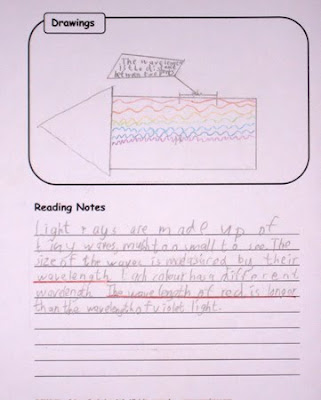 Drawings
The wavelengt
is the distance
between two
Reading Notes
Light rays are made up of
tiny waves, much too small to see. The
size of the waves is measured by their
wavelength. Each colour has a different
wavelength. The wavelength of red is longer
than the wavelength of violet light.